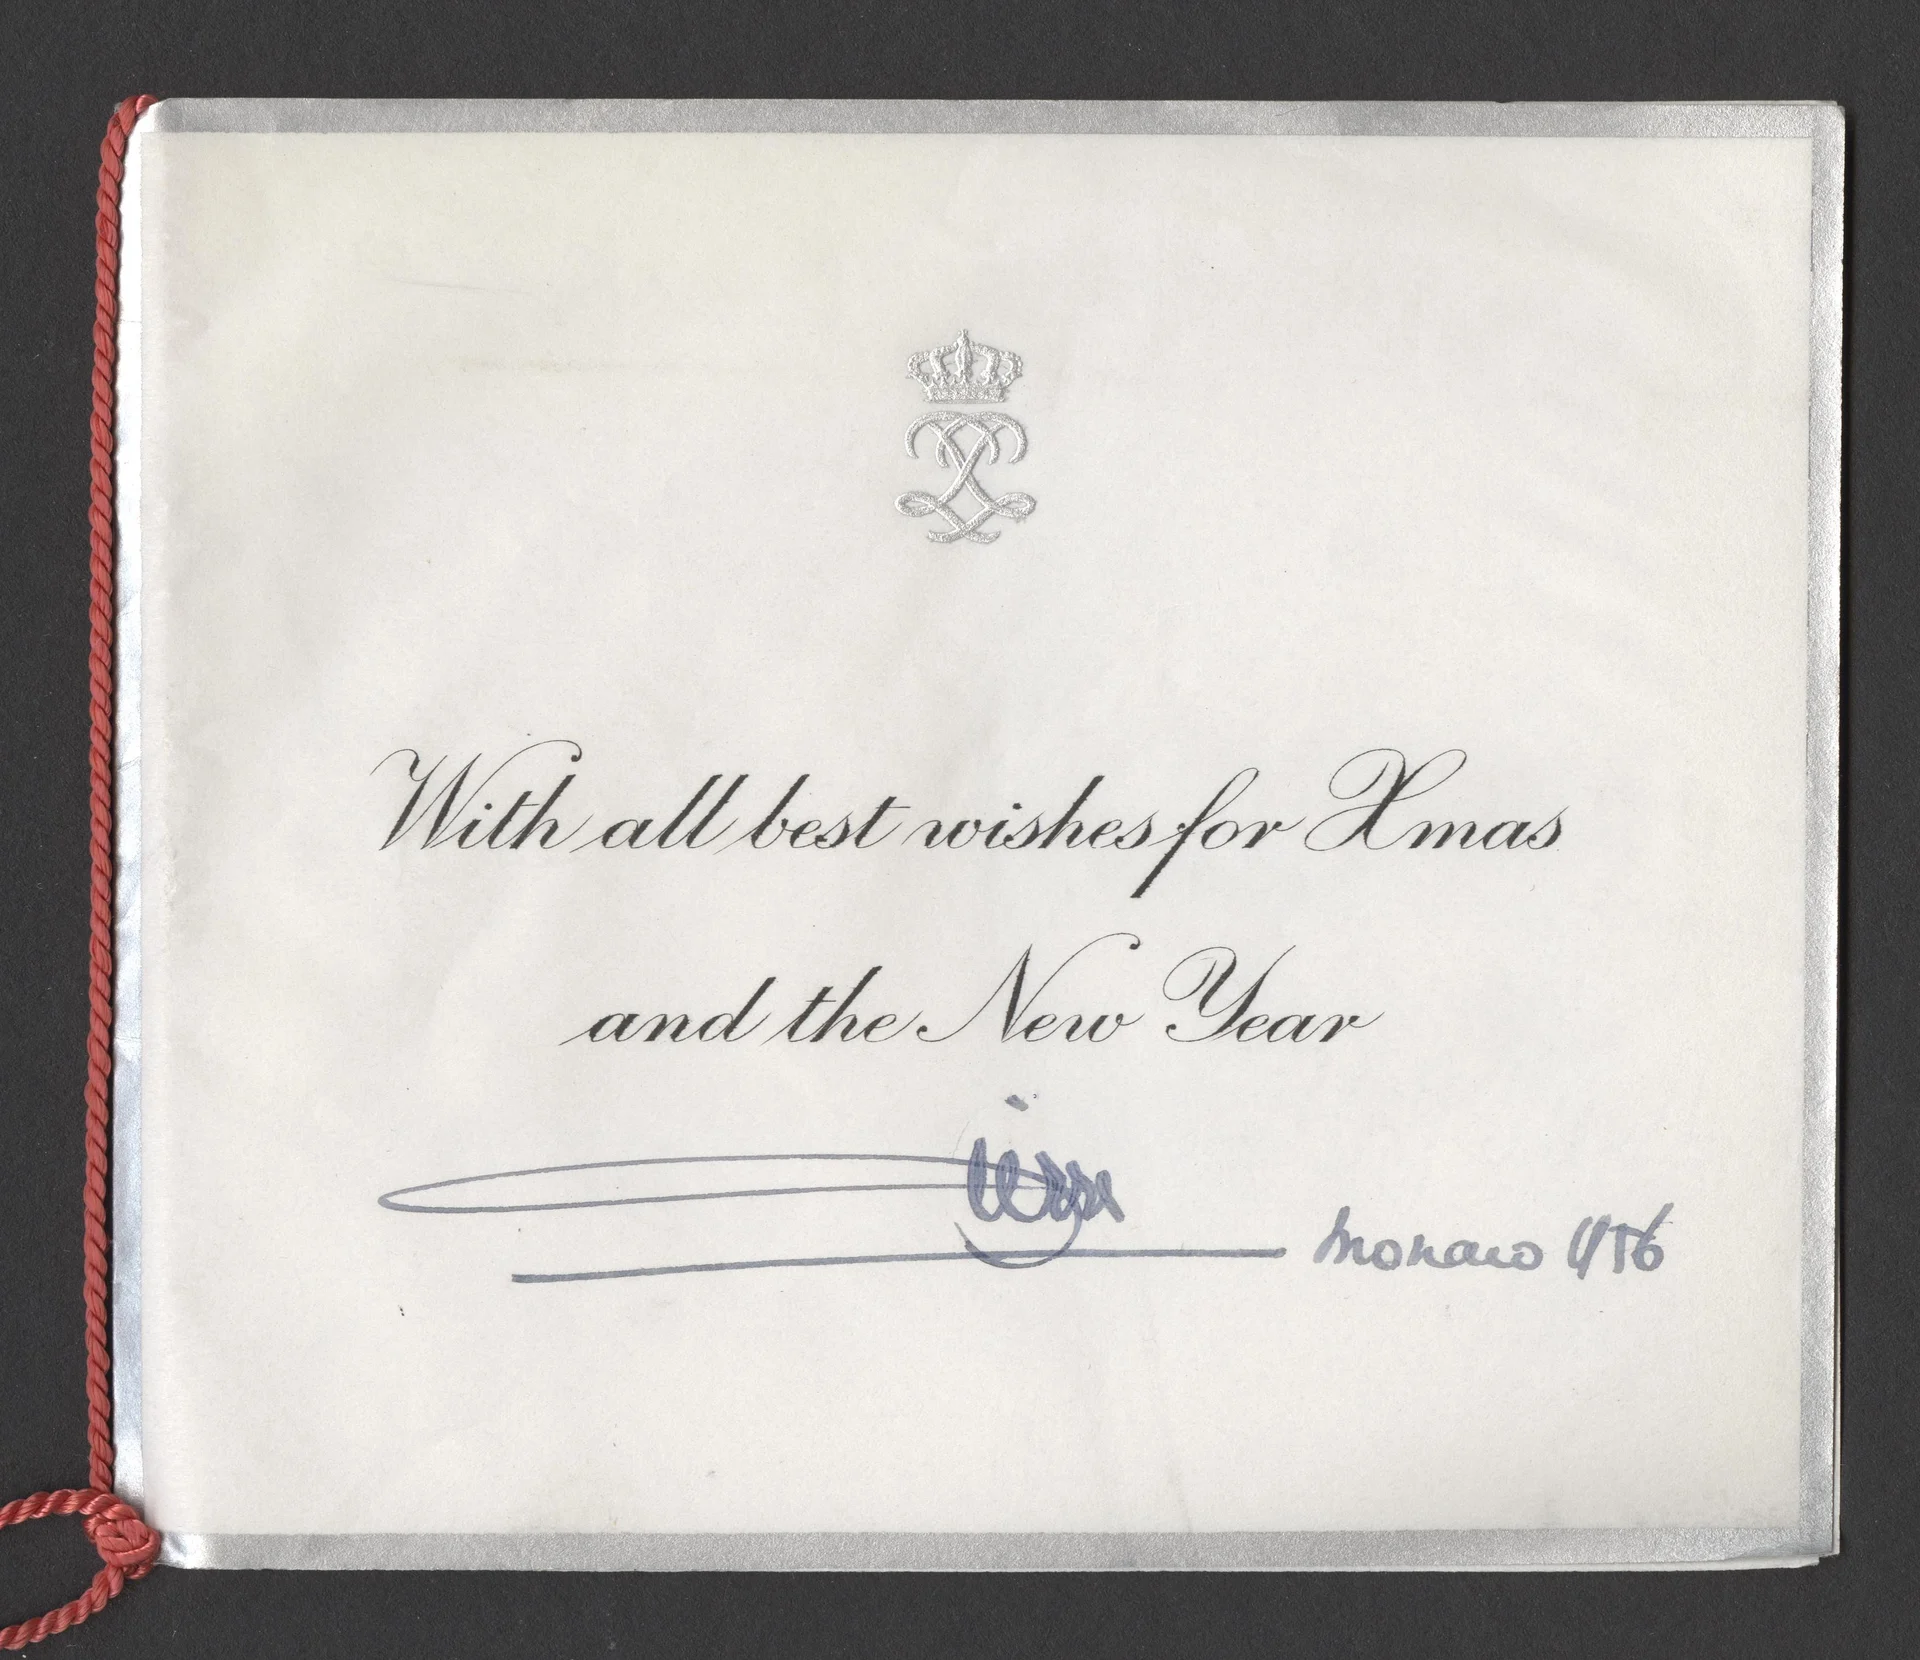 With all best wishes for Xmas
and the New Year
Monaco 1956